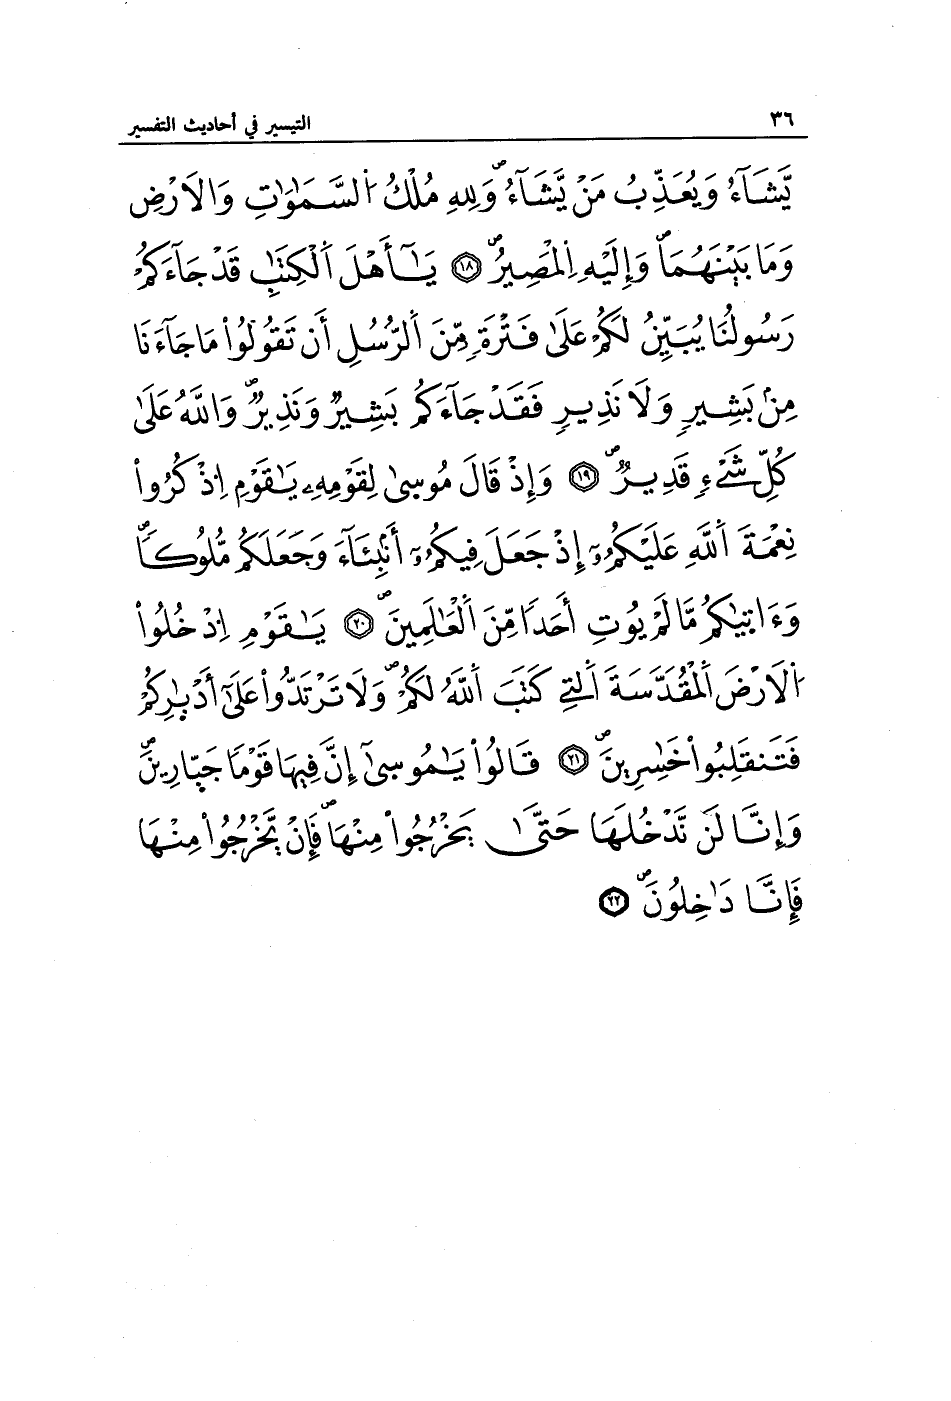 ٣٦ التيسير في أحاديث التفسير
يَّشَآءُ وَيُعَذِّبُ مَنْ يَّشَآءُ وَلِلهِ مُلْكُ اُلسَّمَٰوَٰتِ وَالَارْضِ
وَمَا بَيْنَهُمَا وَإِلَيْهِ اِلْمَصِيرُ ١٨ يَٰٓأَهْلَ اَلْكِتَٰبِ قَدْ جَآءَكُمْ
رَسُولُنَا يُبَيِّنُ لَكُمْ عَلَىٰ فَتْرَةٍ مِّنَ اَلرُّسُلِ أَن تَقُولُواْ مَا جَآءَنَا
مِنۢ بَشِيرٍ وَلَا نَذِيرٍ فَقَدْ جَآءَكُم بَشِيرٌ وَنَذِيرٌ وَاللَّهُ عَلَىٰ
كُلِّ شَےْءٍ قَدِيرٌ ١٩ وَإِذْ قَالَ مُوسىٰ لِقَوْمِهِۦ يَٰقَوْمِ اِذْكُرُواْ
نِعْمَةَ اَللَّهِ عَلَيْكُمُۥٓ إِذْ جَعَلَ فِيكُمُۥٓ أَنۢبِئَآءَ وَجَعَلَكُم مُّلُوكاً
وَءَاتٜيٰكُم مَّا لَمْ يُوتِ أَحَداً مِّنَ اَلْعَٰلَمِينَ ٢٠ يَٰقَوْمِ اِدْخُلُواْ
اُلَارْضَ اَلْمُقَدَّسَةَ اَلتِے كَتَبَ اَللَّهُ لَكُمْ وَلَا تَرْتَدُّواْ عَلَىٰٓ أَدْبٰرِكُمْ
فَتَنقَلِبُواْ خَٰسِرِينَ ٢١ قَالُواْ يَٰمُوسىٰٓ إِنَّ فِيهَا قَوْماً جَبّٰارِينَ
وَإِنَّا لَن نَّدْخُلَهَا حَتَّىٰ يَخْرُجُواْ مِنْهَا فَإِنْ يَّخْرُجُواْ مِنْهَا
فَإِنَّا دَٰخِلُونَ ٢٢